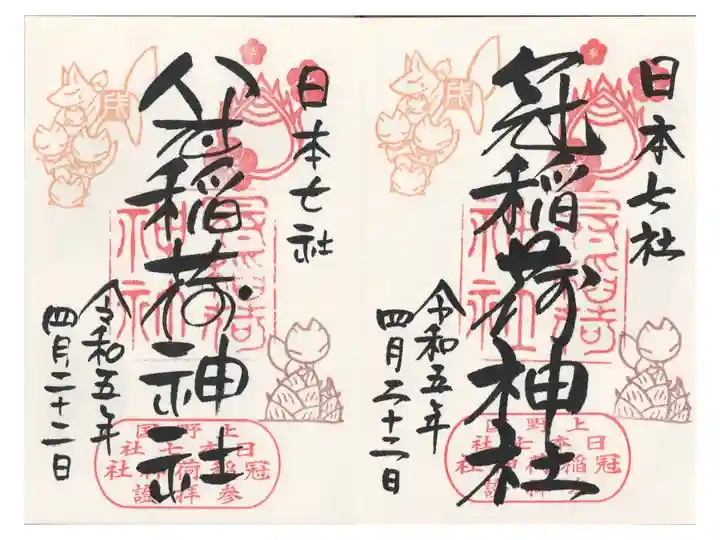 日本七社
八社稲荷神社
令和五年
四月二十二日
冠稲荷
神社
上野国
日本七社
冠稲荷神社
参拝證
日本七社
冠稲荷神社
令和五年
四月二十二日
冠稲荷
神社
上野国
日本七社
冠稲荷神社
参拝證